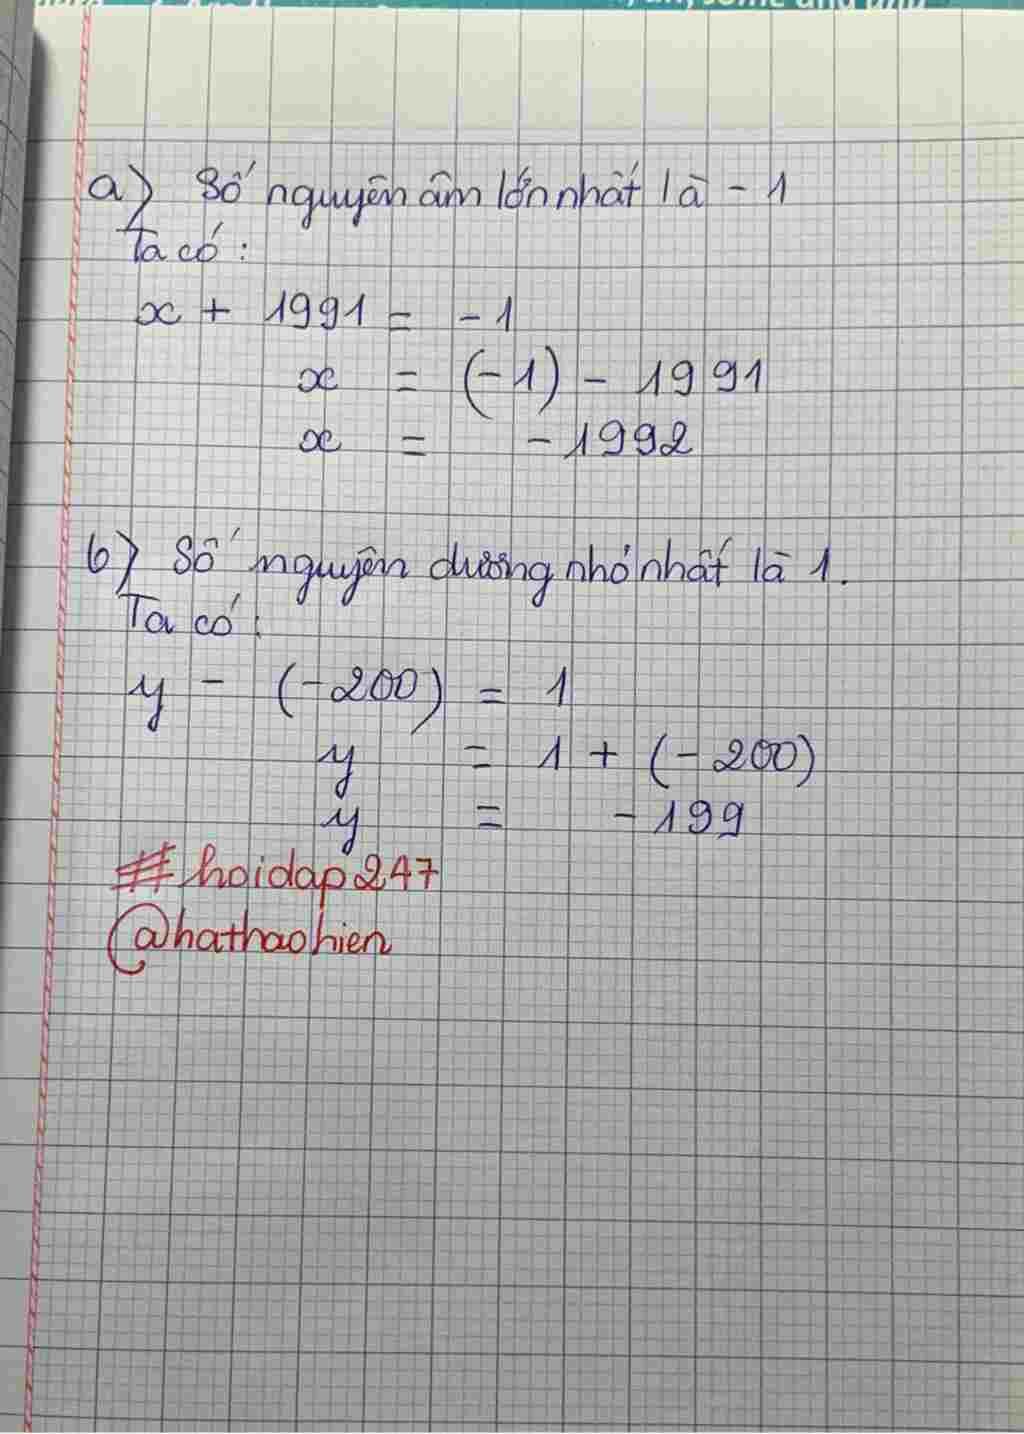 a) Số nguyên âm lớn nhất là - 1
Ta có :
x + 1991 = - 1
x = (-1) - 1991
x = - 1992
b) Số nguyên dương nhỏ nhất là 1.
Ta có :
y - (-200) = 1
y = 1 + (-200)
y = - 199
#hoidap247
@hathaohien